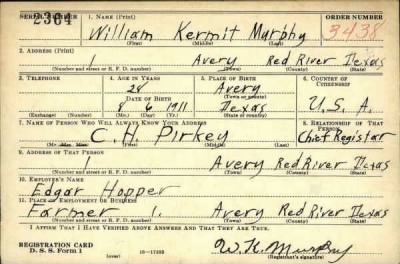 SERIAL NUMBER 1. NAME (Print) ORDER NUMBER
2364 William Kermit Murphy 3438
(First) (Middle) (Last)
2. ADDRESS (Print)
1 Avery Red River Texas
(Number and street or R. F. D. number) (Town) (County) (State)
3. TELEPHONE 4. AGE IN YEARS 5. PLACE OF BIRTH 6. COUNTRY OF CITIZENSHIP
28 Avery
DATE OF BIRTH (Town or county)
8 6 1911 Texas U.S.A.
(Exchange) (Number) (Mo.) (Day) (Yr.) (State or country)
7. NAME OF PERSON WHO WILL ALWAYS KNOW YOUR ADDRESS 8. RELATIONSHIP OF THAT PERSON
C. H. Pirkey Chief Registar
(Mr., Mrs., Miss) (First) (Middle) (Last)
9. ADDRESS OF THAT PERSON
1 Avery Red River Texas
(Number and street or R. F. D. number) (Town) (County) (State)
10. EMPLOYER'S NAME
Edgar Hopper
11. PLACE OF EMPLOYMENT OR BUSINESS
Farmer 1. Avery Red River Texas
(Number and street or R. F. D. number) (Town) (County) (State)
I AFFIRM THAT I HAVE VERIFIED ABOVE ANSWERS AND THAT THEY ARE TRUE.
REGISTRATION CARD
D. S. S. Form 1 16-17105 W. K. Murphy
(Registrant's signature)